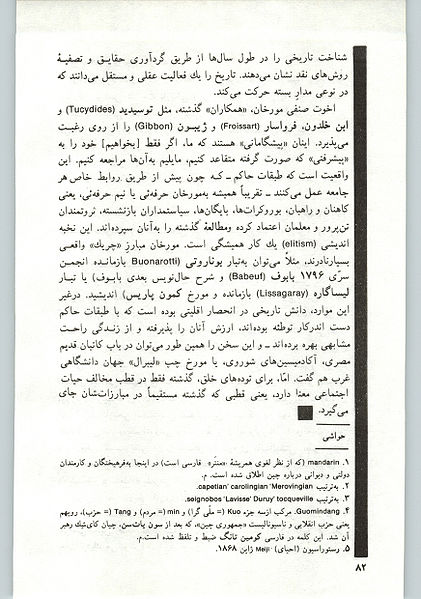 شناخت تاریخی را در طول سال‌ها از طریق گردآوری حقایق و تصفیهٔ
روش‌های نقد نشان می‌دهند. تاریخ را یك فعالیت عقلی و مستقل می‌دانند که
در نوعی مدار بسته حرکت می‌کند.
اخوت صنفی مورخان، «همکاران» گذشته، مثل توسیدید (Tucydides) و
ابن خلدون، فرواسار (Froissart) و ژیبون (Gibbon) را از روی رغبت
می‌پذیرد. اینان «پیشگامانی» هستند که ما، اگر فقط [بخواهیم] خود را به
«پیشرفتی» که صورت گرفته متقاعد کنیم، مایلیم به‌آن‌ها مراجعه کنیم. این
واقعیت است که طبقات حاکم ـ کـه چون پیش از طریق روابط خاص هر
جامعه عمل می‌کنند ـ تقریباً همیشه به‌مورخان حرفه‌ئی یا نیم حرفه‌ئی، یعنی
کاهنان و راهبان، بوروکرات‌ها، بایگان‌ها، سیاستمداران بازنشسته، ثروتمندان
تن‌پرور و معلمان اعتماد کرده ومطالعهٔ گذشته را به‌آنان سپرده‌اند. این نخبه
اندیشی (elitism) یك کار همیشگی است. مورخان مبارز «چریك» واقعـی
بسیارنادرند، مثلاً می‌توان به‌تبار بوناروتی (Buonarotti) بازمانده انجمـن
سرّی ۱۷۹۶ بابوف (Babeuf) و شرح حال‌نویس بعدی بابـوف) یا تبـار
لیساگاره (Lissagaray) بازمانده و مورخ کمون پاریس) اندیشید. درغیر
این موارد، دانش تاریخی در انحصار اقلیتی بوده است که با طبقات حاکم
دست اندرکار توطئه بوده‌اند، ارزش آنان را پذیرفته و از زنـدگی راحـت
مشابهی بهره برده‌اند ـ و این سخن را همین طور می‌توان در باب کاتبان قدیم
مصری، آکادمیسین‌های شوروی، یا مورخ چپ «لیبرال» جهان دانشگاهی
غرب هم گفت. امّا، برای توده‌های خلق، گذشته فقط در قطب مخالف حیات
اجتماعی معنا دارد، یعنی قطبی که گذشته مستقیماً در مبارزات‌شان جای
می‌گیرد.
حواشی
۱. mandarin (که از نظر لغوی همریشهٔ «منتَره» فارسی است) در اینجا به‌فرهیختگان و کارمندان
دولتی و دیوانی درباره چین اطلاق شده است. م.
۲. به‌ترتیب Merovingian' carolingian 'capetian.
۳. به‌ترتیب tocqueville 'Duruy 'Lavisse' seignobos.
۴. Guomindang. مرکب ازسه جزء Kuo (= ملّی گرا) و min (= مردم) و Tang (= حزب)، رویهم
یعنی حزب انقلابی و ناسیونالیست «جمهوری چین»، که بعد از سون یات‌سن، چیان کای‌شك رهبر
آن شد. این کلمه در فارسی کومین تانگ ضبط و تلفظ شده است.م.
۵. رستوراسیون (احیای) Meiji ژاپن ۱۸۶۸.
۸۲